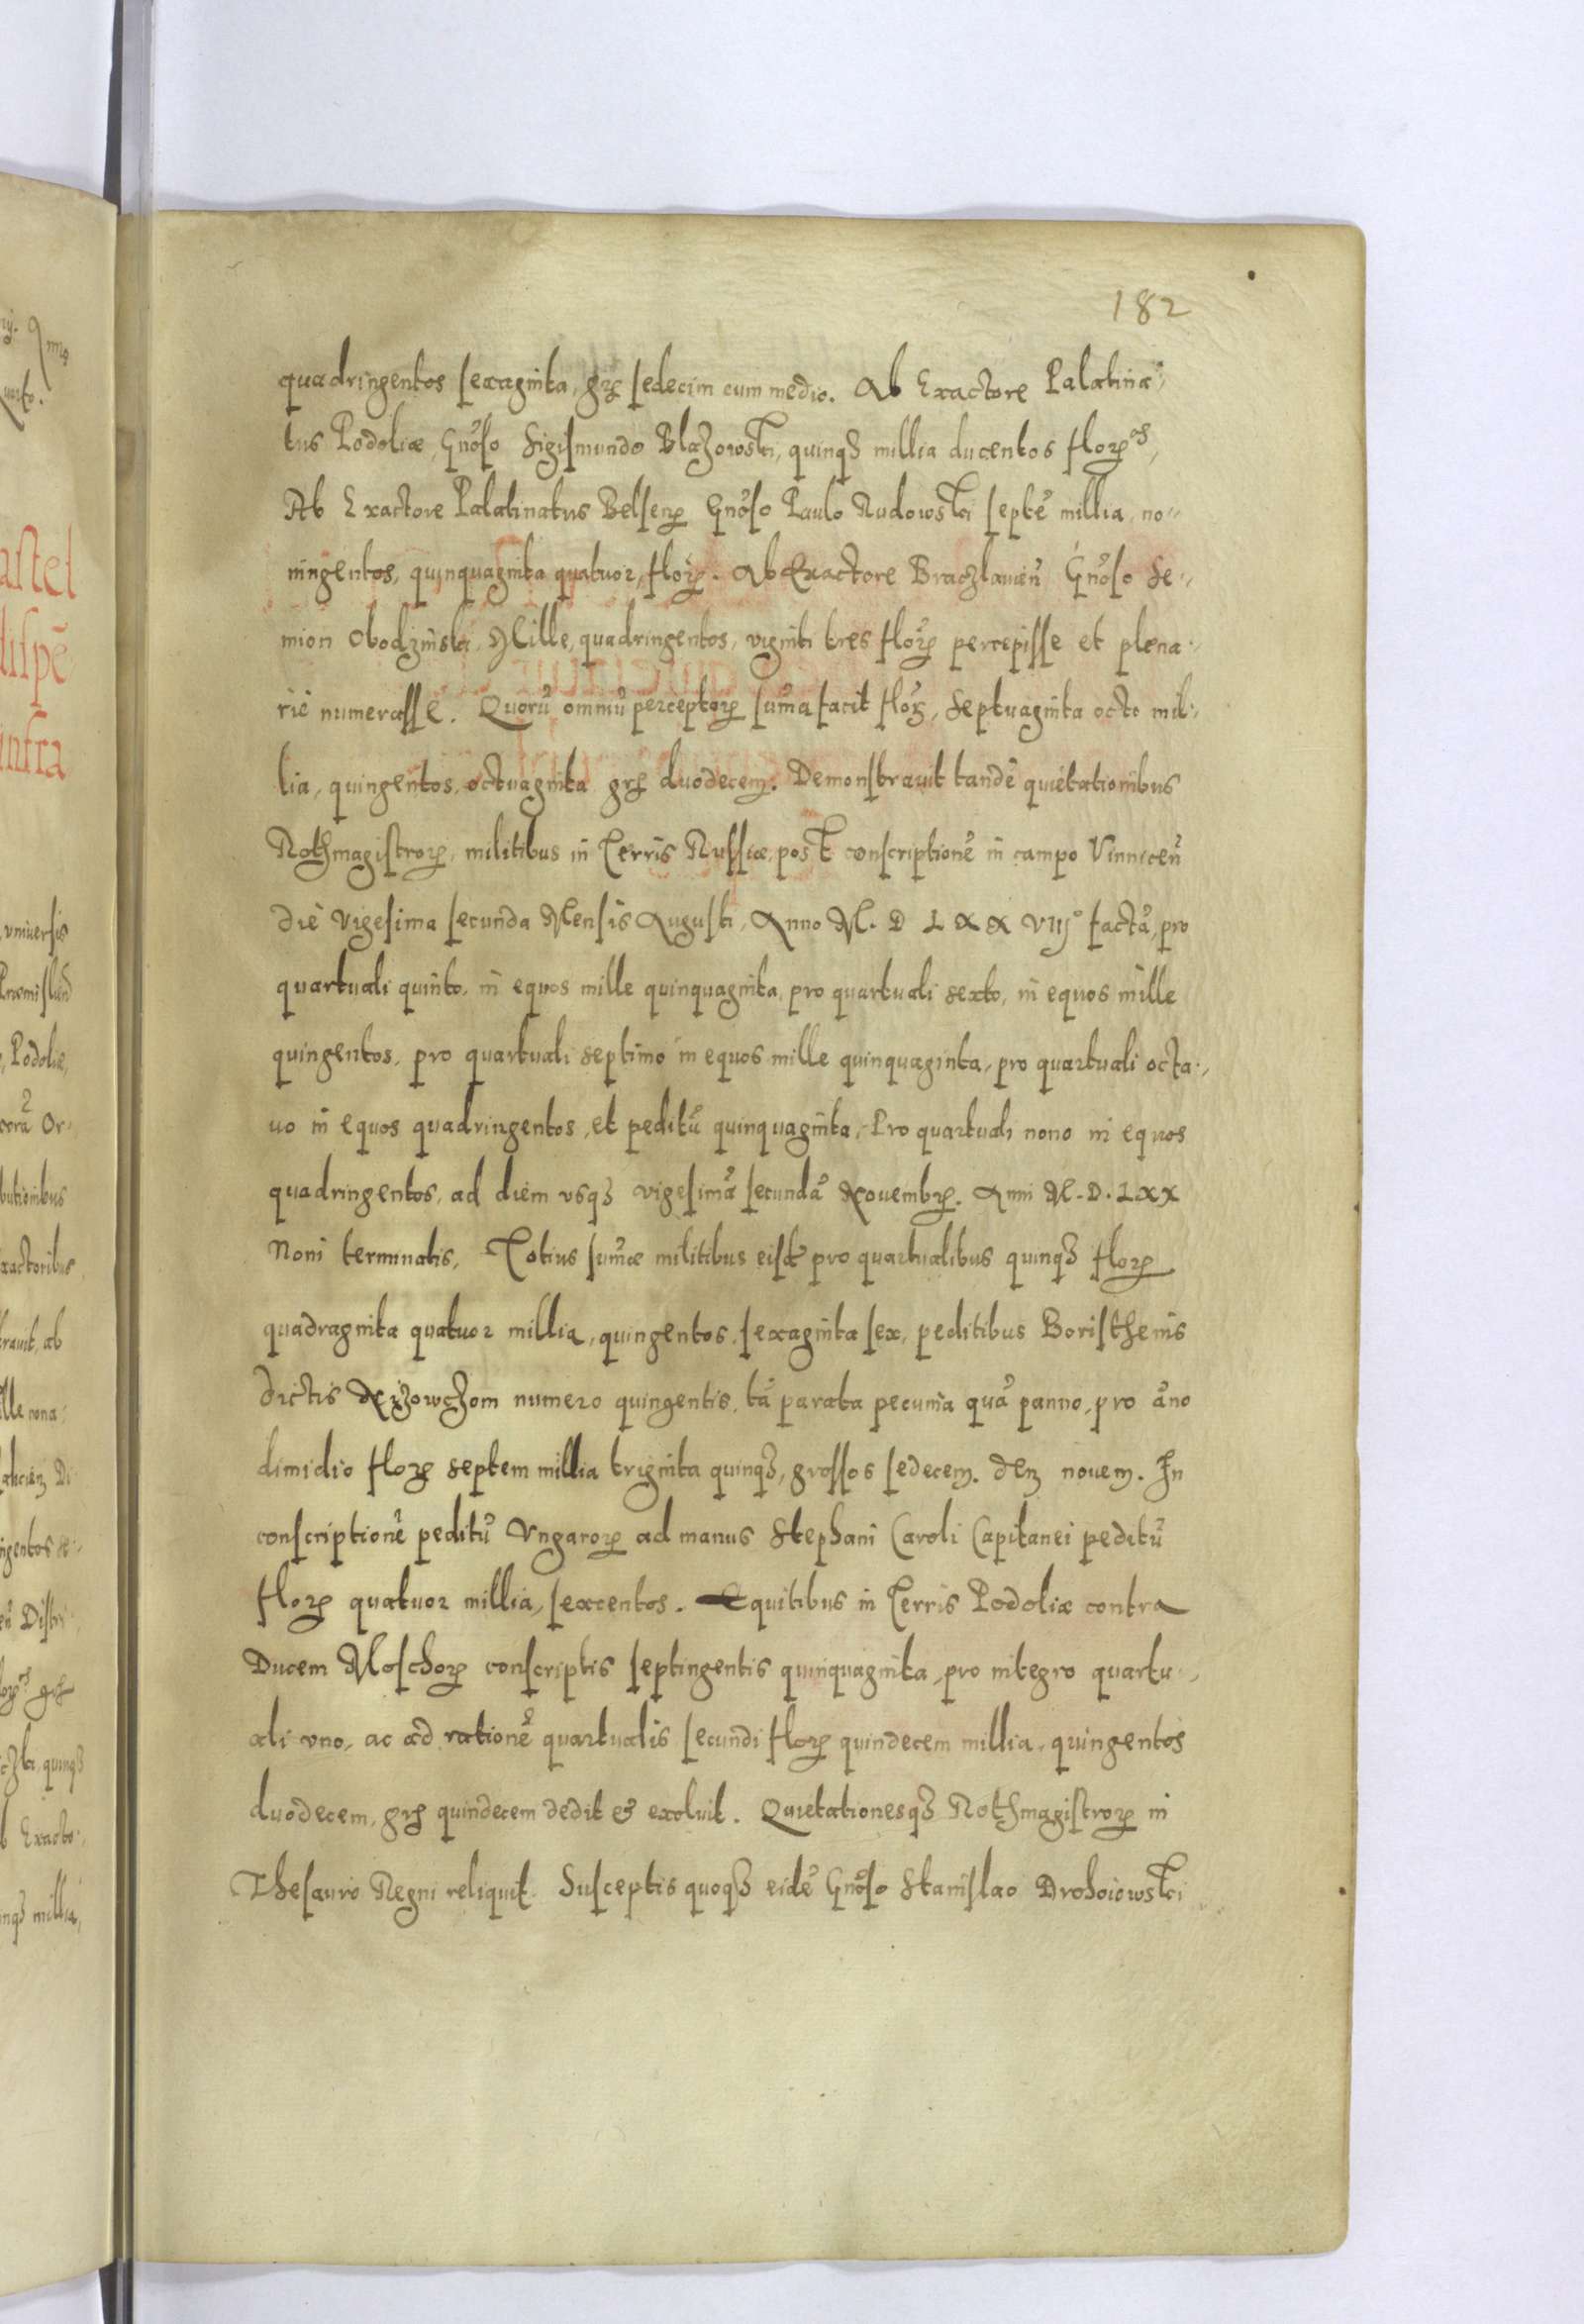 182
quadringentos sexaginta, grꝝ sedecim cum medio. Ab Exactore Palatina-
tus Podoliæ, Gnõso Sigismundo Blazowski, quinqꝫ millia ducentos florꝝ,
Ab Exactore Palatinatus Belsenꝝ Gnõso Paulo Rudowski septẽ millia, no-
ningentos, quinquaginta quatuor, florꝝ. Ab Exactore Braczlauien̄ Gnõso Se-
mion Obodzinski, Mille, quadringentos, viginti tres florꝝ percepisse et plena-
rie numerasse. Quorũ omniũ perceptorꝝ sum̃a facit florꝝ, Septuaginta octo mil-
lia, quingentos, octuaginta grꝝ duodecem. Demonstrauit tandẽ quietationibus
Rothmagistrorꝝ, militibus in Terris Russiæ, post conscriptionẽ in campo Vinnicen̄
die vigesima secunda Mensis Augusti, Anno M. D LXX VIIJ° factã, pro
quartuali quinto, in equos mille quinquaginta, pro quartuali sexto, in equos mille
quingentos, pro quartuali septimo in equos mille quinquaginta, pro quartuali octa-
uo in equos quadringentos, et peditũ quinquaginta, Pro quartuali nono in equos
quadringentos, ad diem vsqꝫ vigesimã secundã Nouembrꝝ. Anni M. D. LXX
Noni terminatis, Totius sum̃æ militibus eisd pro quartualibus quinqꝫ florꝝ
quadraginta quatuor millia, quingentos, sexaginta sex, peditibus Boristhenis
dictis Nizowczom numero quingentis, tã parata pecunia quã panno, pro ãno
dimidio florꝝ septem millia triginta quinqꝫ, grossos sedecem. den̄ nouem. In
conscriptionẽ peditũ Vngarorꝝ ad manus Stephani Caroli Capitanei peditũ
florꝝ quatuor millia, sexcentos. Equitibus in Terris Podoliæ contra
Ducem Moschorꝝ conscriptis septingentis quinquaginta, pro integro quartu-
ali vno, ac ad rationẽ quartualis secundi florꝝ quindecem millia, quingentos
duodecem, grꝝ quindecem dedit & exoluit. Quietationesqꝫ Rothmagistrorꝝ in
Thesauro Regni reliquit. Susceptis quoqꝫ eidẽ Gnõso Stanislao Drohoiowski